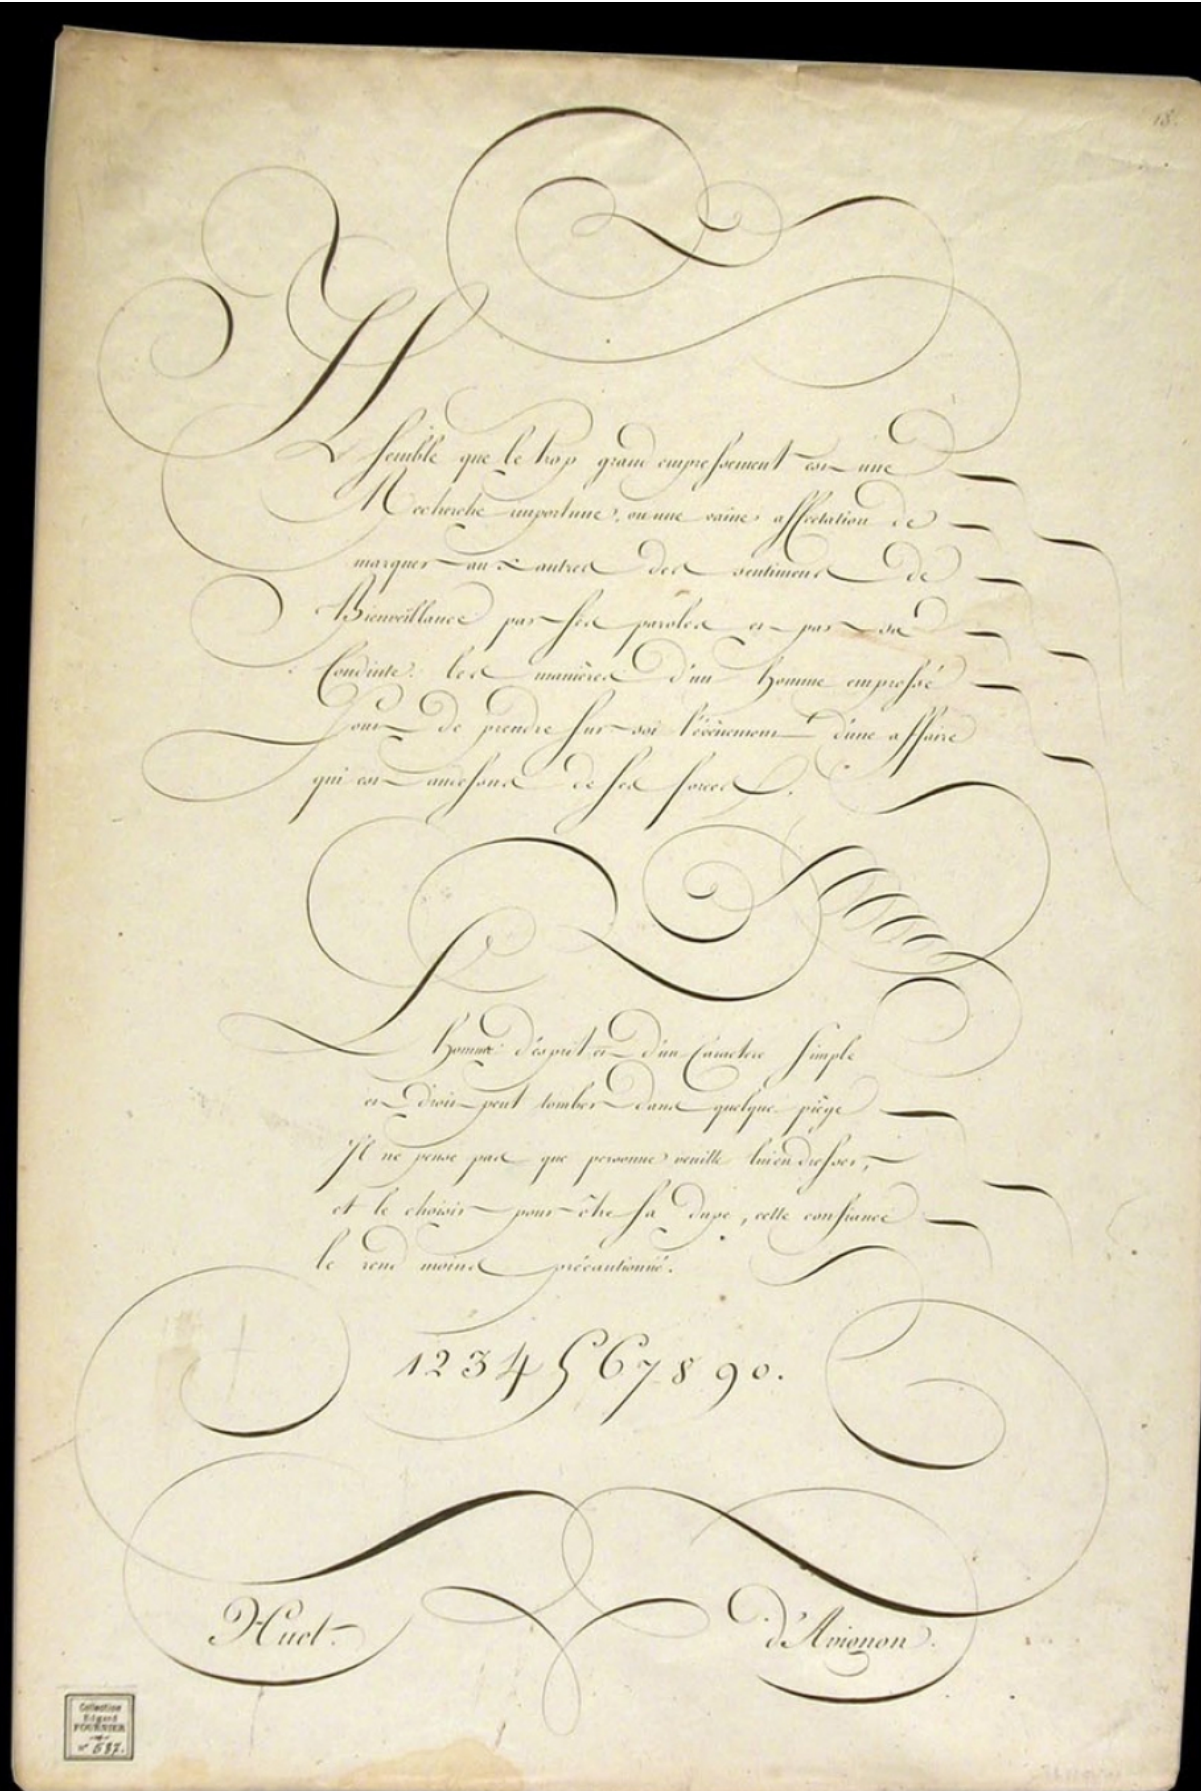 18.
Il semble que le trop grand empressement est une
Recherche importune, ou une vaine affectation de
marquer aux autres des sentimens de
Bienveillance par ses paroles et par sa
Conduite. les manières d'un homme empressé
sont de prendre sur soi l'évènement d'une affaire
qui est audessus de ses forces.
L'homme d'esprit et d'un Caractere simple
et droit peut tomber dans quelque piège
Il ne pense pas que personne veuille lui en dresser,
et le choisir pour être sa dupe, cette confiance
le rend moins précautionné.
1 2 3 4 5 6 7 8 9 0.
Huet. d'Avignon.
Collection
Edgard
FOURNIER
n° 537.